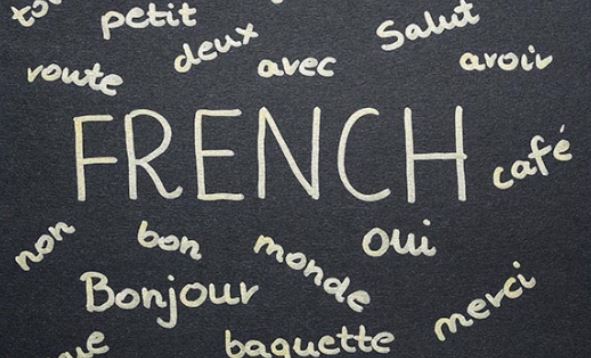 petit
Salut
deux
route
avec
avoir
FRENCH
café
non
bon
oui
monde
Bonjour
merci
baguette